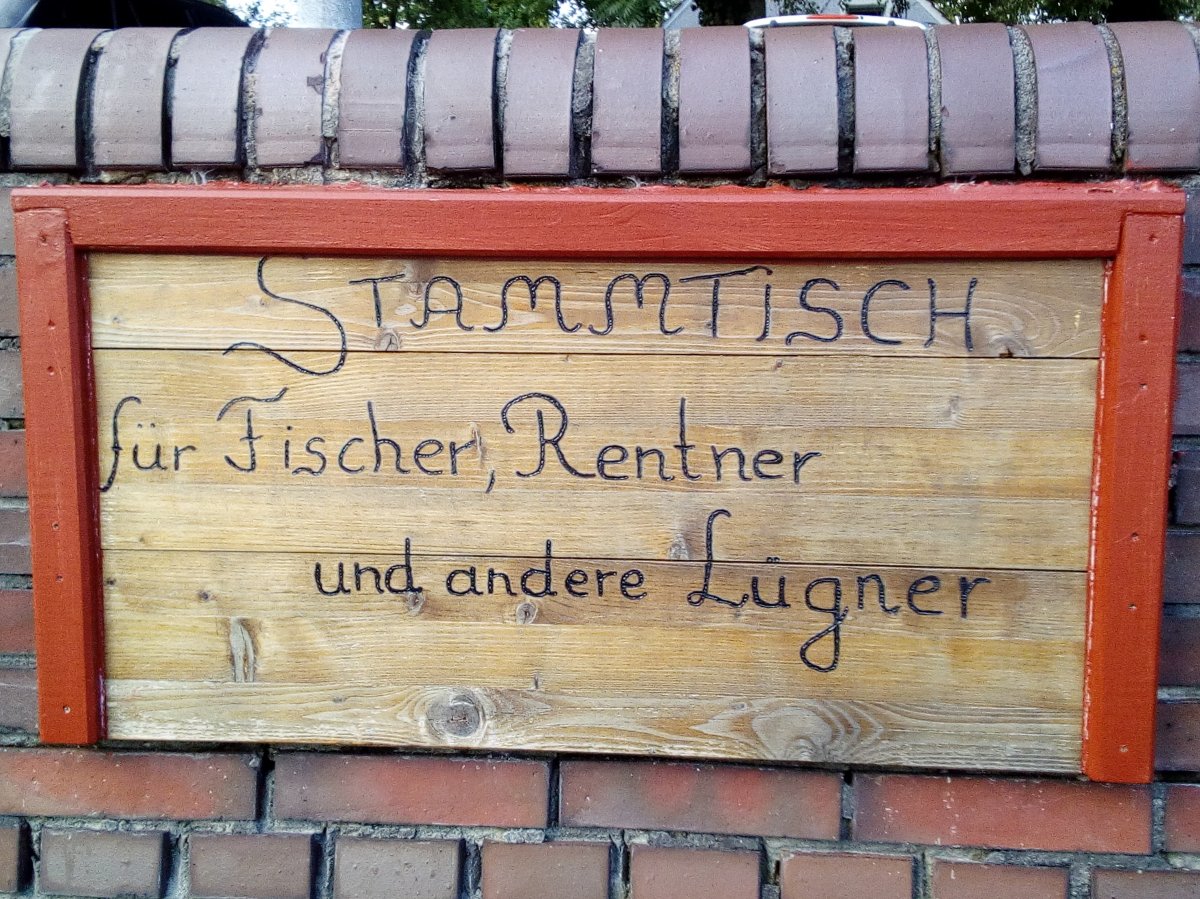 STAMMTISCH
für Fischer, Rentner
und andere Lügner